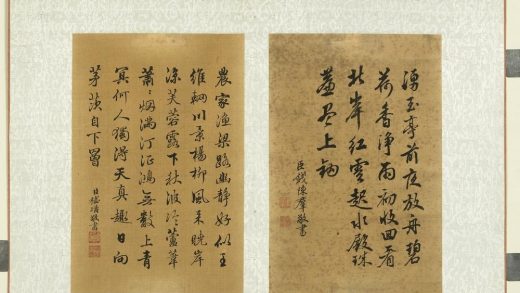 湧玉亭前夜放舟碧
荷香淨雨初收回看
北岸紅雲起水殿珠
簾盡上鈎
臣錢陳羣敬書
農家漁梁路幽靜好似王
維輞川景楊柳風來晚岸
涼芙蓉露下秋波冷蘆葦
蕭〻烟滿汀征鴻無數上青
冥何人獨得天真趣日向
茅茨自下罾
臣嵇璜敬書